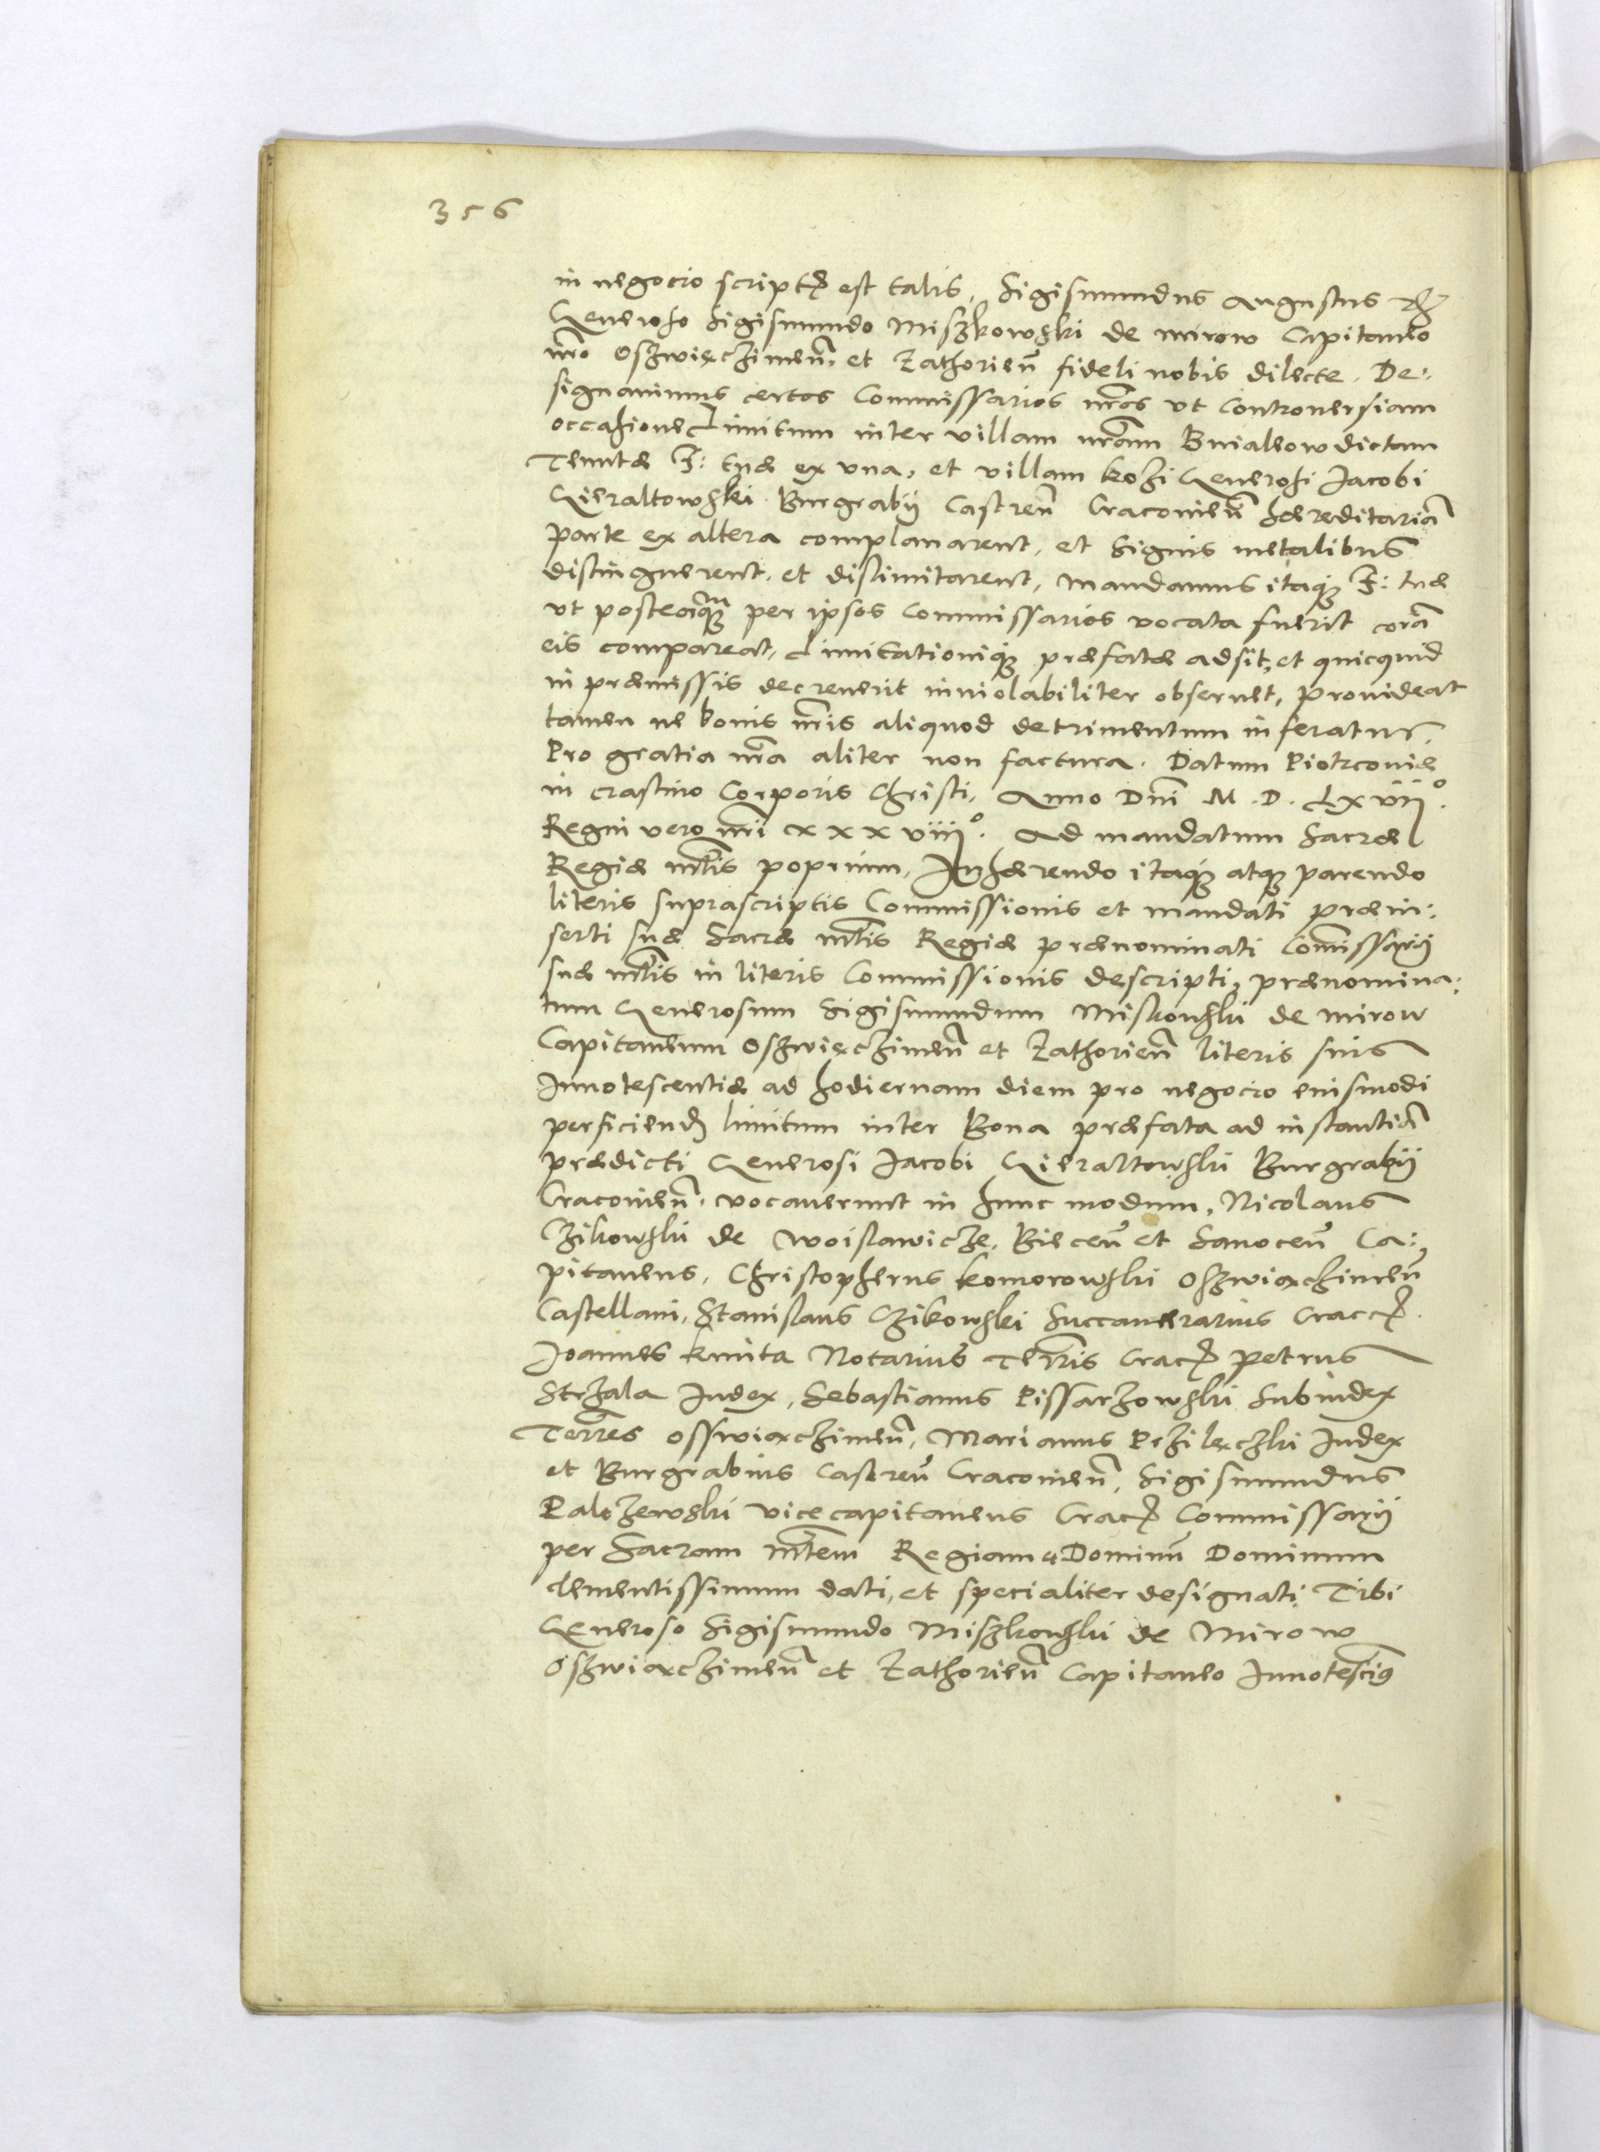 356
in negocio script est talis, Sigismundus Augustus
Generoso Sigismundo Miszkowski de mirow Capitaneo
nro Oszwięczimeñ. et Zathorieñ fideli nobis dilecte. De:
signavimus certos Commissarios nros vt controuersiam
occasione Limitum inter villam nram Buiakow dictam
Tenutæ F: tuæ ex vna, et villam kozi Generosi Jacobi
Gieraltowski Burgrabij Castreñ Cracovieñ hæreditariã
parte ex altera complanarent, et Signis metalibus
distinguerent, et dislimitarent, mandamus itaq; F: tuæ
vt posteaquam per ipsos Commissarios vocata fuerit corã
eis compareat, Limitationiq; præfatæ adsit, et quicquid
in præmissis decreuerit inuiolabiliter obseruet, prouideat
tamen ne bonis nris aliquod detrimentum inferatur,
Pro gratia nra aliter non factura. Datum Piotrcouiæ
in crastino Corporis Christi, Anno Dni M. D. Lxvij°.
Regni vero nri xxxviij°. Ad mandatum Sacræ
Regiæ mtis poprium, Inhærendo itaq; atq; parendo
literis suprascriptis Commissionis et mandati præin:
serti suæ Sacræ mtis Regiæ prænominati Comissarij
suæ mtis in literis Commissionis descripti, prænomina:
tum Generosum Sigismundum Miskowski de mirow
Capitaneum Oszwięczimeñ et Zathorieñ literis suis
Innotescentiæ ad hodiernam diem pro negocio euismodi
perficiend limitum inter Bona præfata ad instantiã
prædicti Generosi Jacobi Gieraltowski Burgrabij
Cracovieñ. vocauerunt in hunc modum, Nicolaus
Czikowski de Woislawicze, Bieceñ et Sanoceñ Ca:
pitaneus, Christopherus komorowski Oszwiæczimeñ
Castellani, Stanislaus Czikowski Succamerarius Cracc
Joannes kmita Notarius Terris Crac Petrus
Strzala Judex, Sebastianus Pissarzowski Subiudex
Terres Osswiæczimeñ, Marianus Przilęczki Judex
et Burgrabius Castreñ Cracovieñ, Sigismundus
Palczewski vicecapitaneus Crac Commissarij
per Sacram mtem Regiam Dominũ Dominum
clementissimum dati, et specialiter designati Tibi
Generoso Sigismundo Miszkowski de Mirow
Oszwiæczimeñ et Zathorieñ Capitaneo Innotescimus